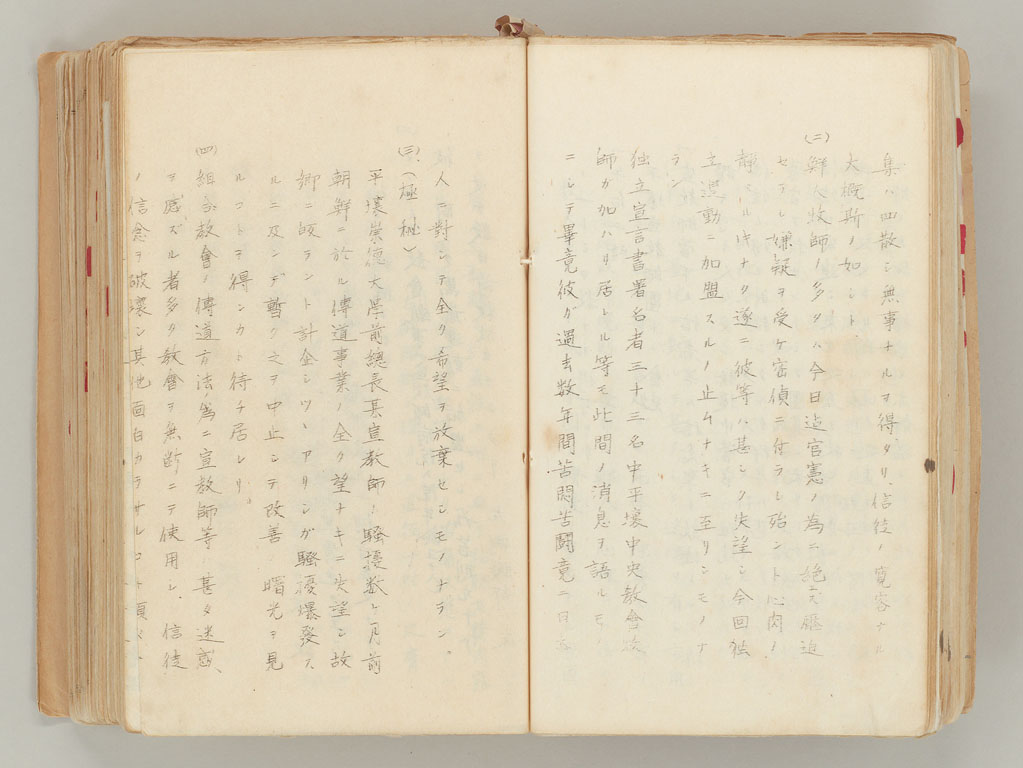 集ハ四散シ無事ナルヲ得タリ、信徒ノ寛容ナル
大概斯ノ如シト
(二)鮮人牧師ノ多クハ今日迄官憲ノ為ニ絶大壓迫
セラレ嫌疑ヲ受ケ密偵ニ付ラレ殆ント心肉ノ
静マル時ナク遂ニ彼等ハ甚シク失望シ今回独
立運動ニ加盟スルノ止ムナキニ至リシモノナ
ラン
独立宣言書署名者三十三名中平壌中央教會牧
師ガ加ハリ居レル等モ此間ノ消息ヲ語ルモノ
ニシテ畢竟彼ガ過去数年間苦悶苦闘竟ニ日本
人ニ對シテ全ク希望ヲ放棄セシモノナラン。
(三)(極秘)
平壌崇徳大学前總長某宣教師ハ騒擾数ヶ月前
朝鮮ニ於ル傳道事業ノ全ク望ナキニ失望シ故
郷ニ皈ラント計企シツヽアリシガ騒擾爆発ス
ルニ及ンデ暫ク之ヲ中止シテ改善ノ曙光ヲ見
ルコトヲ得ンカト待チ居レリ。
(四)組合教會ノ傳道方法ノ為ニ宣教師等ハ甚タ迷惑
ヲ感ズル者多ク教會ヲ無断ニテ使用シ、信徒
ノ信念ヲ破壊シ其他面白カラサルコト頂々